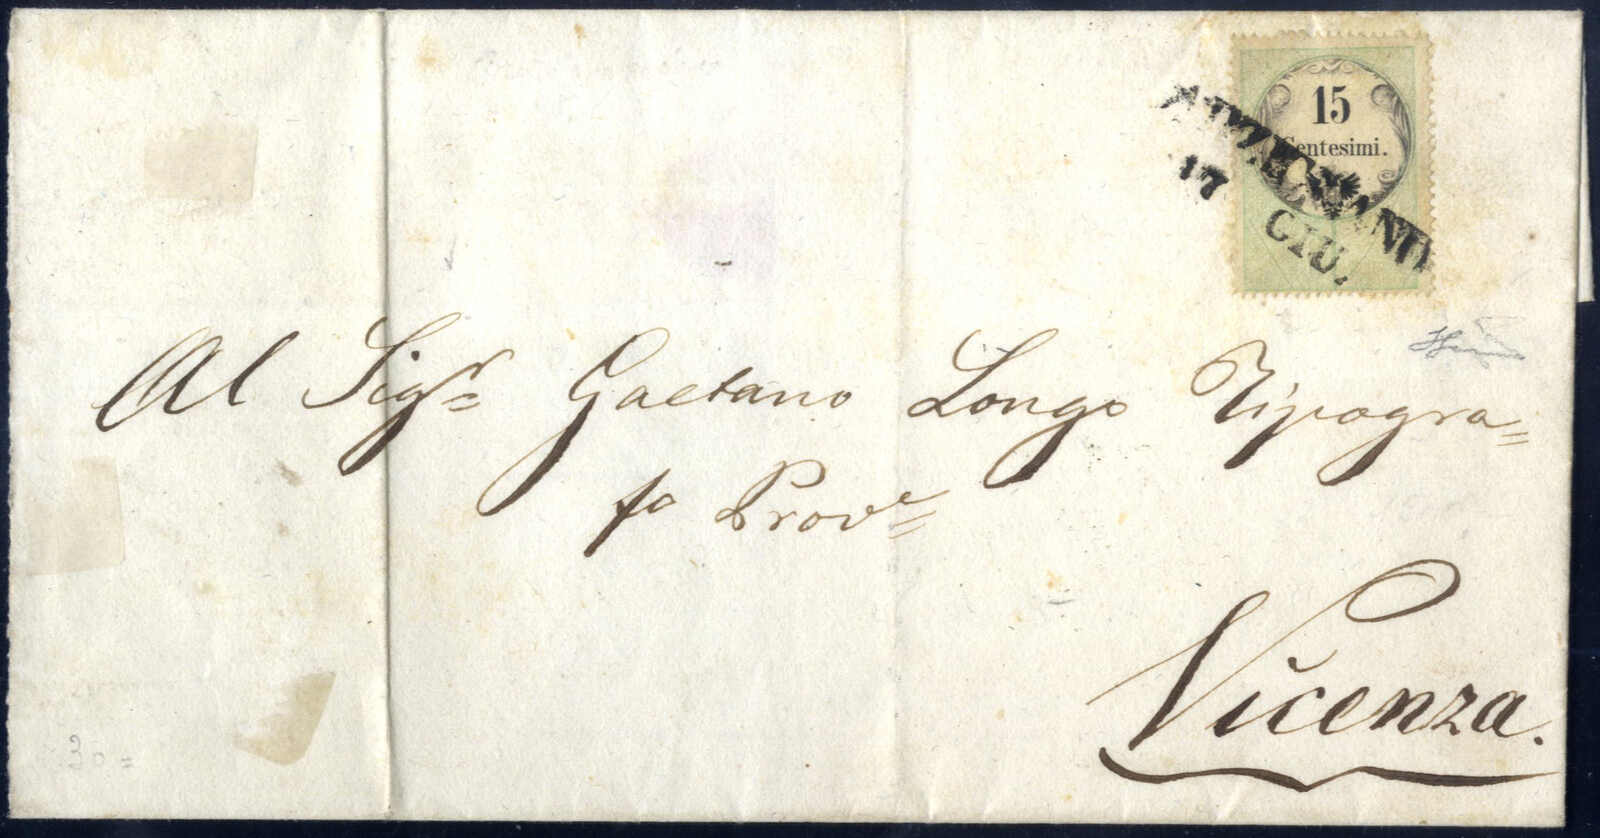 15
Centesimi.
17 GIU.
Al Sigr= Gaetano Longo Tipogra=
fo Prove=
Vicenza.
30=